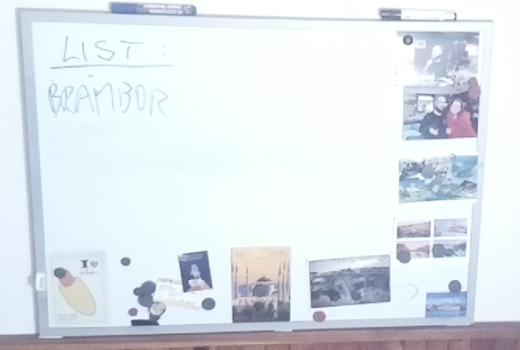 LIST:
BRAMBOR
I